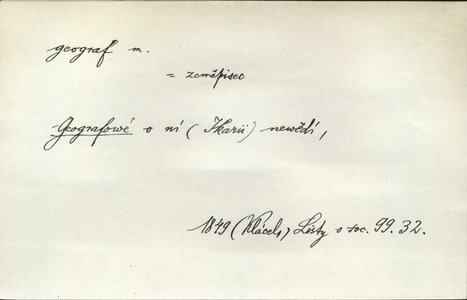 geograf m.
= zeměpisec
Geografowé o ní (Ikarii) newědí,
1849 (Klácel,) Listy o soc. 99. 32.